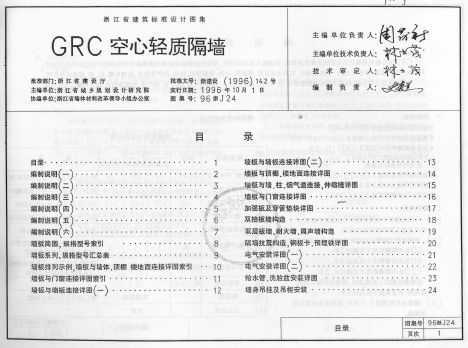 浙江省建筑标准设计图集
GRC 空心轻质隔墙
批准部门：浙江省建设厅
主编单位：浙江省城乡规划设计研究院
协编单位：浙江省墙体材料改革领导小组办公室
批准文号：(1996)142号
实行日期：1996年10月1日
图集号：96浙J24
主编单位负责人：
主编单位技术负责人：
技术审定人：
编制负责人：
目 录
目录 1
编制说明(一) 2
编制说明(二) 3
编制说明(三) 4
编制说明(四) 5
编制说明(五) 6
编制说明(六) 7
墙板简图，规格型号索引 8
墙板系列，规格型号汇总表 9
墙板排列示例，墙板与墙体，顶棚 楼地面连接详图索引 10
墙板与门窗连接详图索引 11
墙板与墙板连接详图(一) 12
墙板与墙板连接详图(二) 13
墙板与顶棚，楼地面连接详图 14
墙板与墙，柱，烟气道连接，伸缩缝详图 15
墙板与门窗连接详图 16
加强板及穿管垫块详图 17
双抽板墙构造 18
双层板墙，耐火墙，隔声墙构造 19
隔墙抗震构造，钢板卡，预埋铁详图 20
电气安装详图(一) 21
电气安装详图(二) 22
给水管，洗脸盆安装详图 23
墙身吊挂及吊柜安装 24
目录
图集号 96浙J24
页次 1